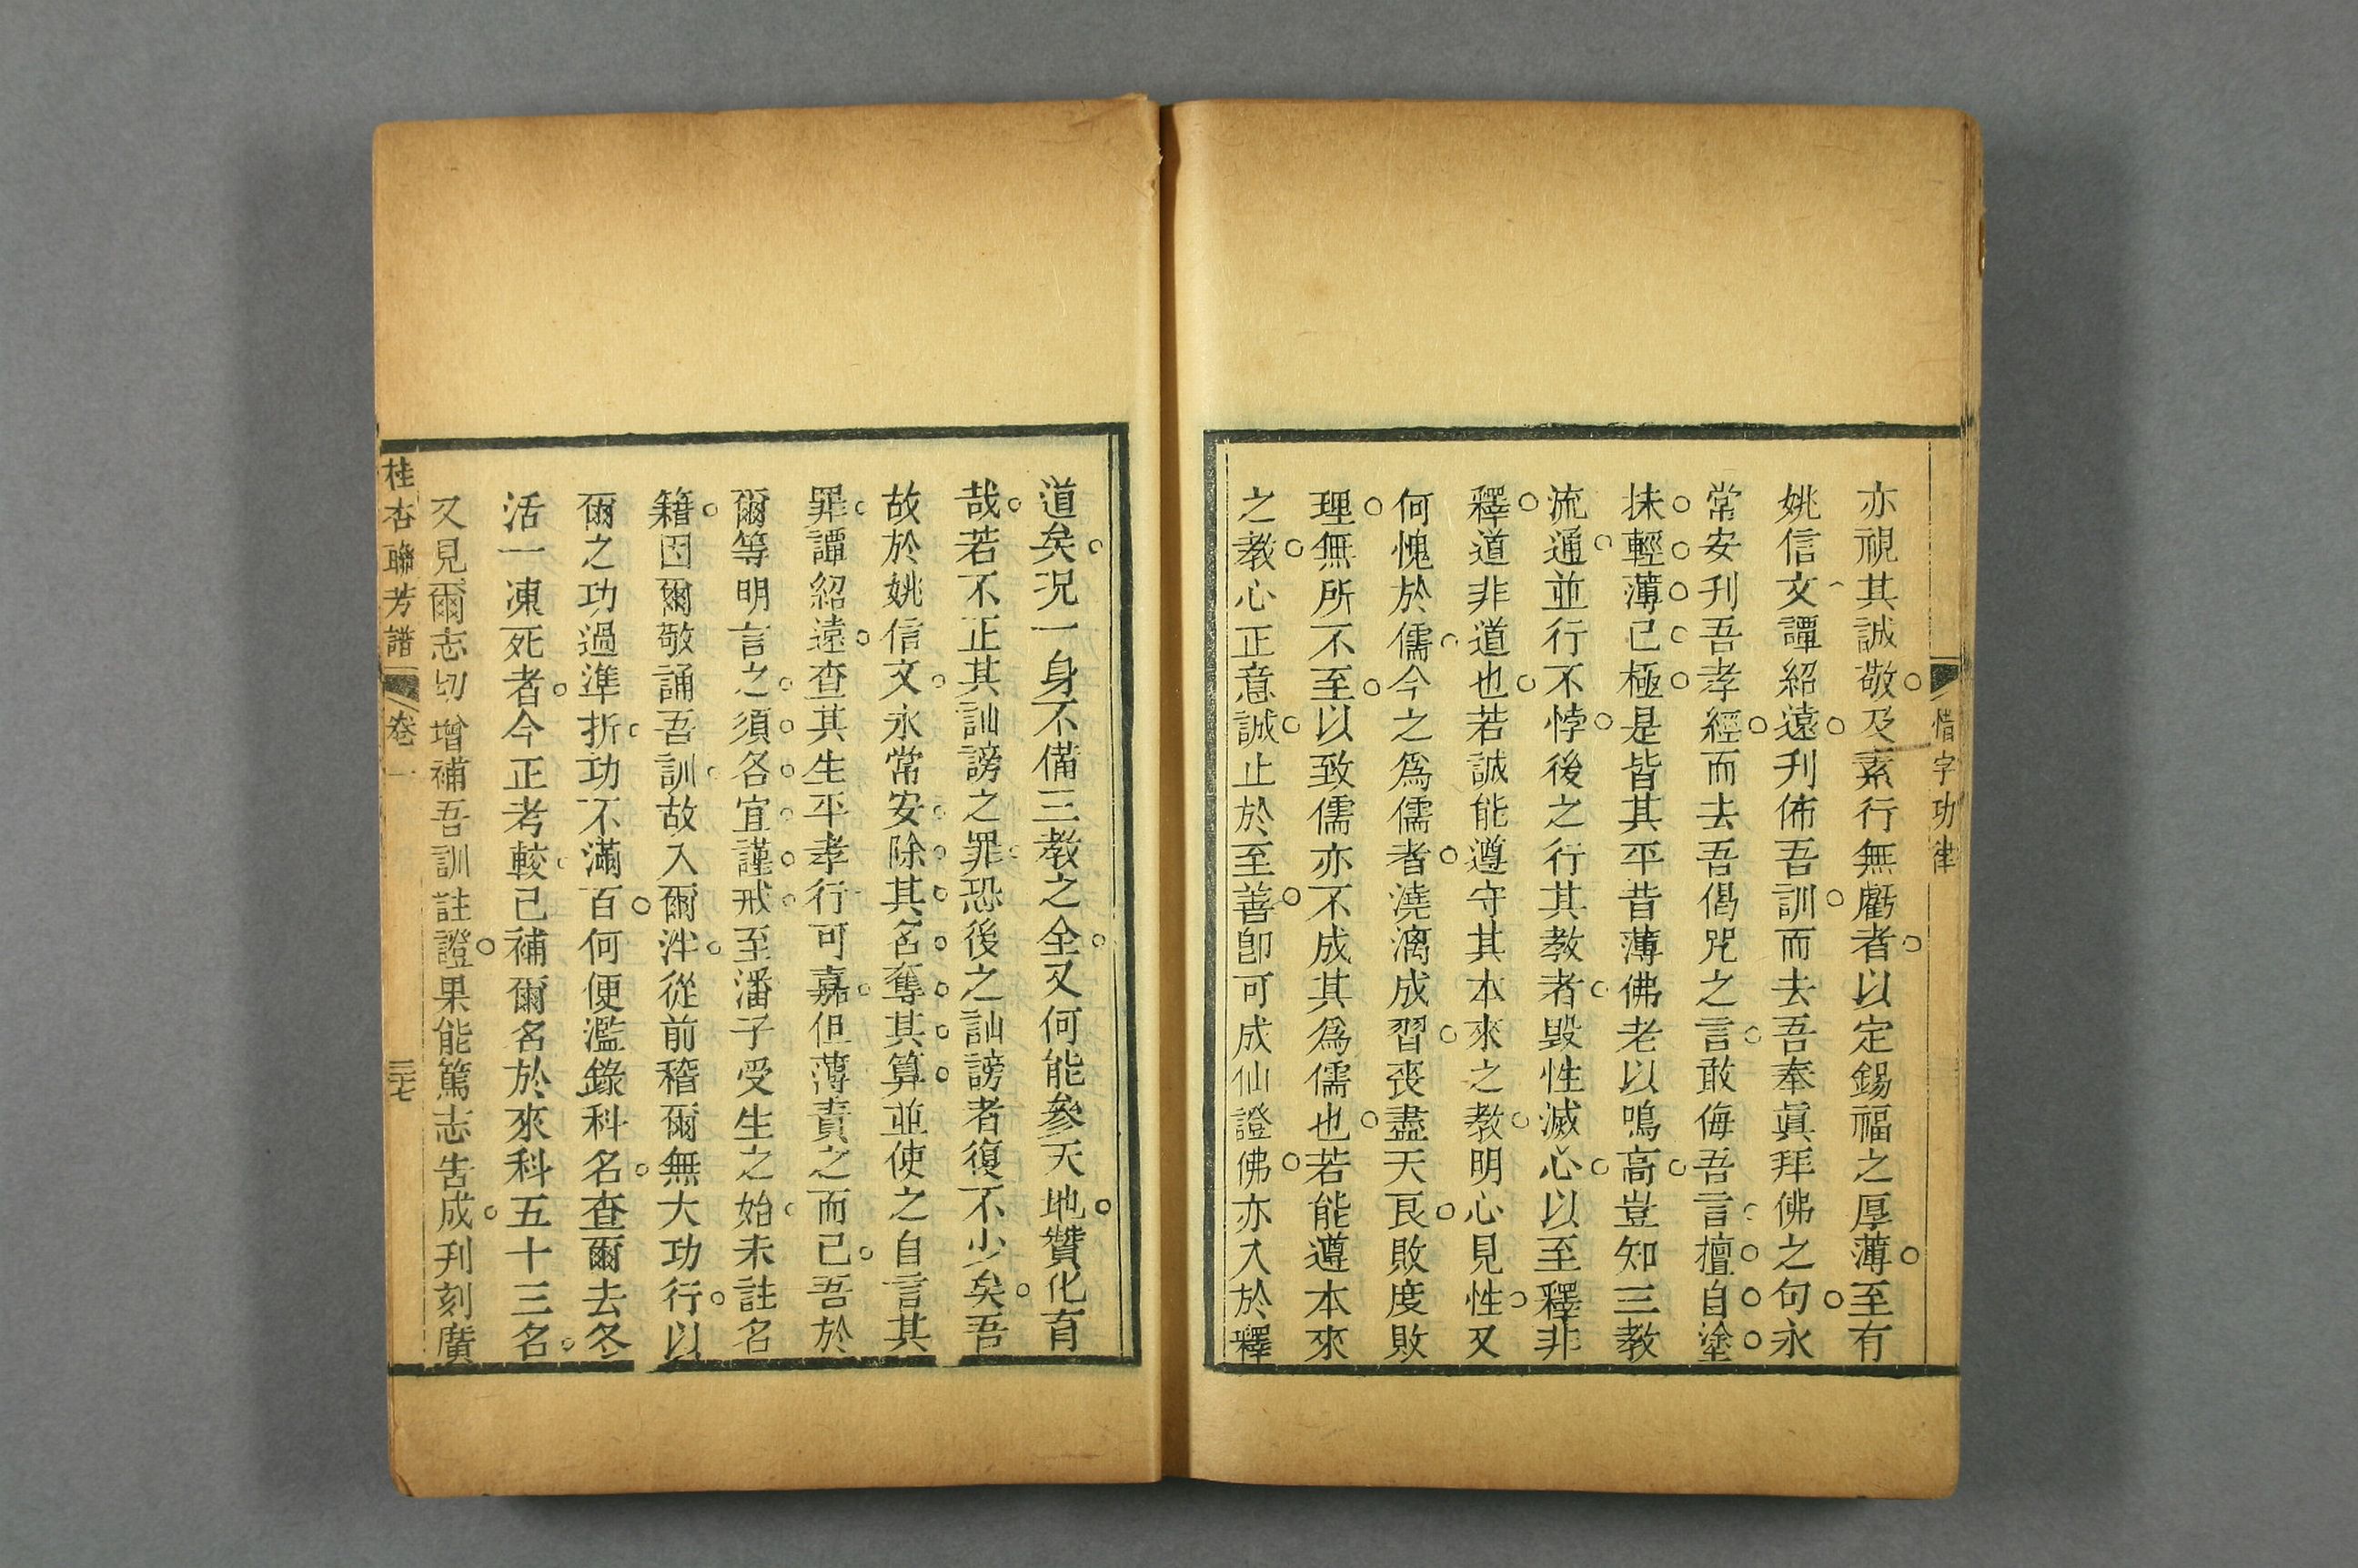 惜字功律
亦視其誠敬。及素行無虧者。以定錫福之厚薄。至有
姚信文譚紹遠。刋佈吾訓。而去吾奉眞拜佛之句。永
常安刋吾孝經。而去吾偈咒之言。敢侮吾言。擅自塗
抹。輕薄己極。是皆其平昔薄佛老以鳴高。豈知三教
流通。並行不悖。後之行其教者。毀性滅心。以至釋非
釋。道非道也。若誠能遵守其本來之教。明心見性。又
何愧於儒。今之爲儒者。澆漓成習。喪盡天良。敗度敗
理。無所不至。以致儒亦不成其爲儒也。若能遵本來
之教。心正意誠。止於至善。卽可成仙證佛。亦入於釋
道矣。况一身不備三教之全。又何能參天地。贊化育
哉。若不正其訕謗之罪。恐後之訕謗者復不少矣。吾
故於姚信文。永常安。除其名。奪其算。並使之自言其
罪。譚紹遠。查其生平孝行可嘉。但薄責之而己。吾於
爾等明言之。須各宜謹戒。至潘子受生之始。未註名
籍。因爾敬誦吾訓。故入爾泮。從前稽爾無大功行。以
爾之功過準折。功不滿百。何便濫錄科名。查爾去冬
活一凍死者。今正考較。己補爾名於來科五十三名。
又見爾志切增補吾訓註證。果能篤志告成。刋刻廣
桂杏聯芳譜
卷一
三七